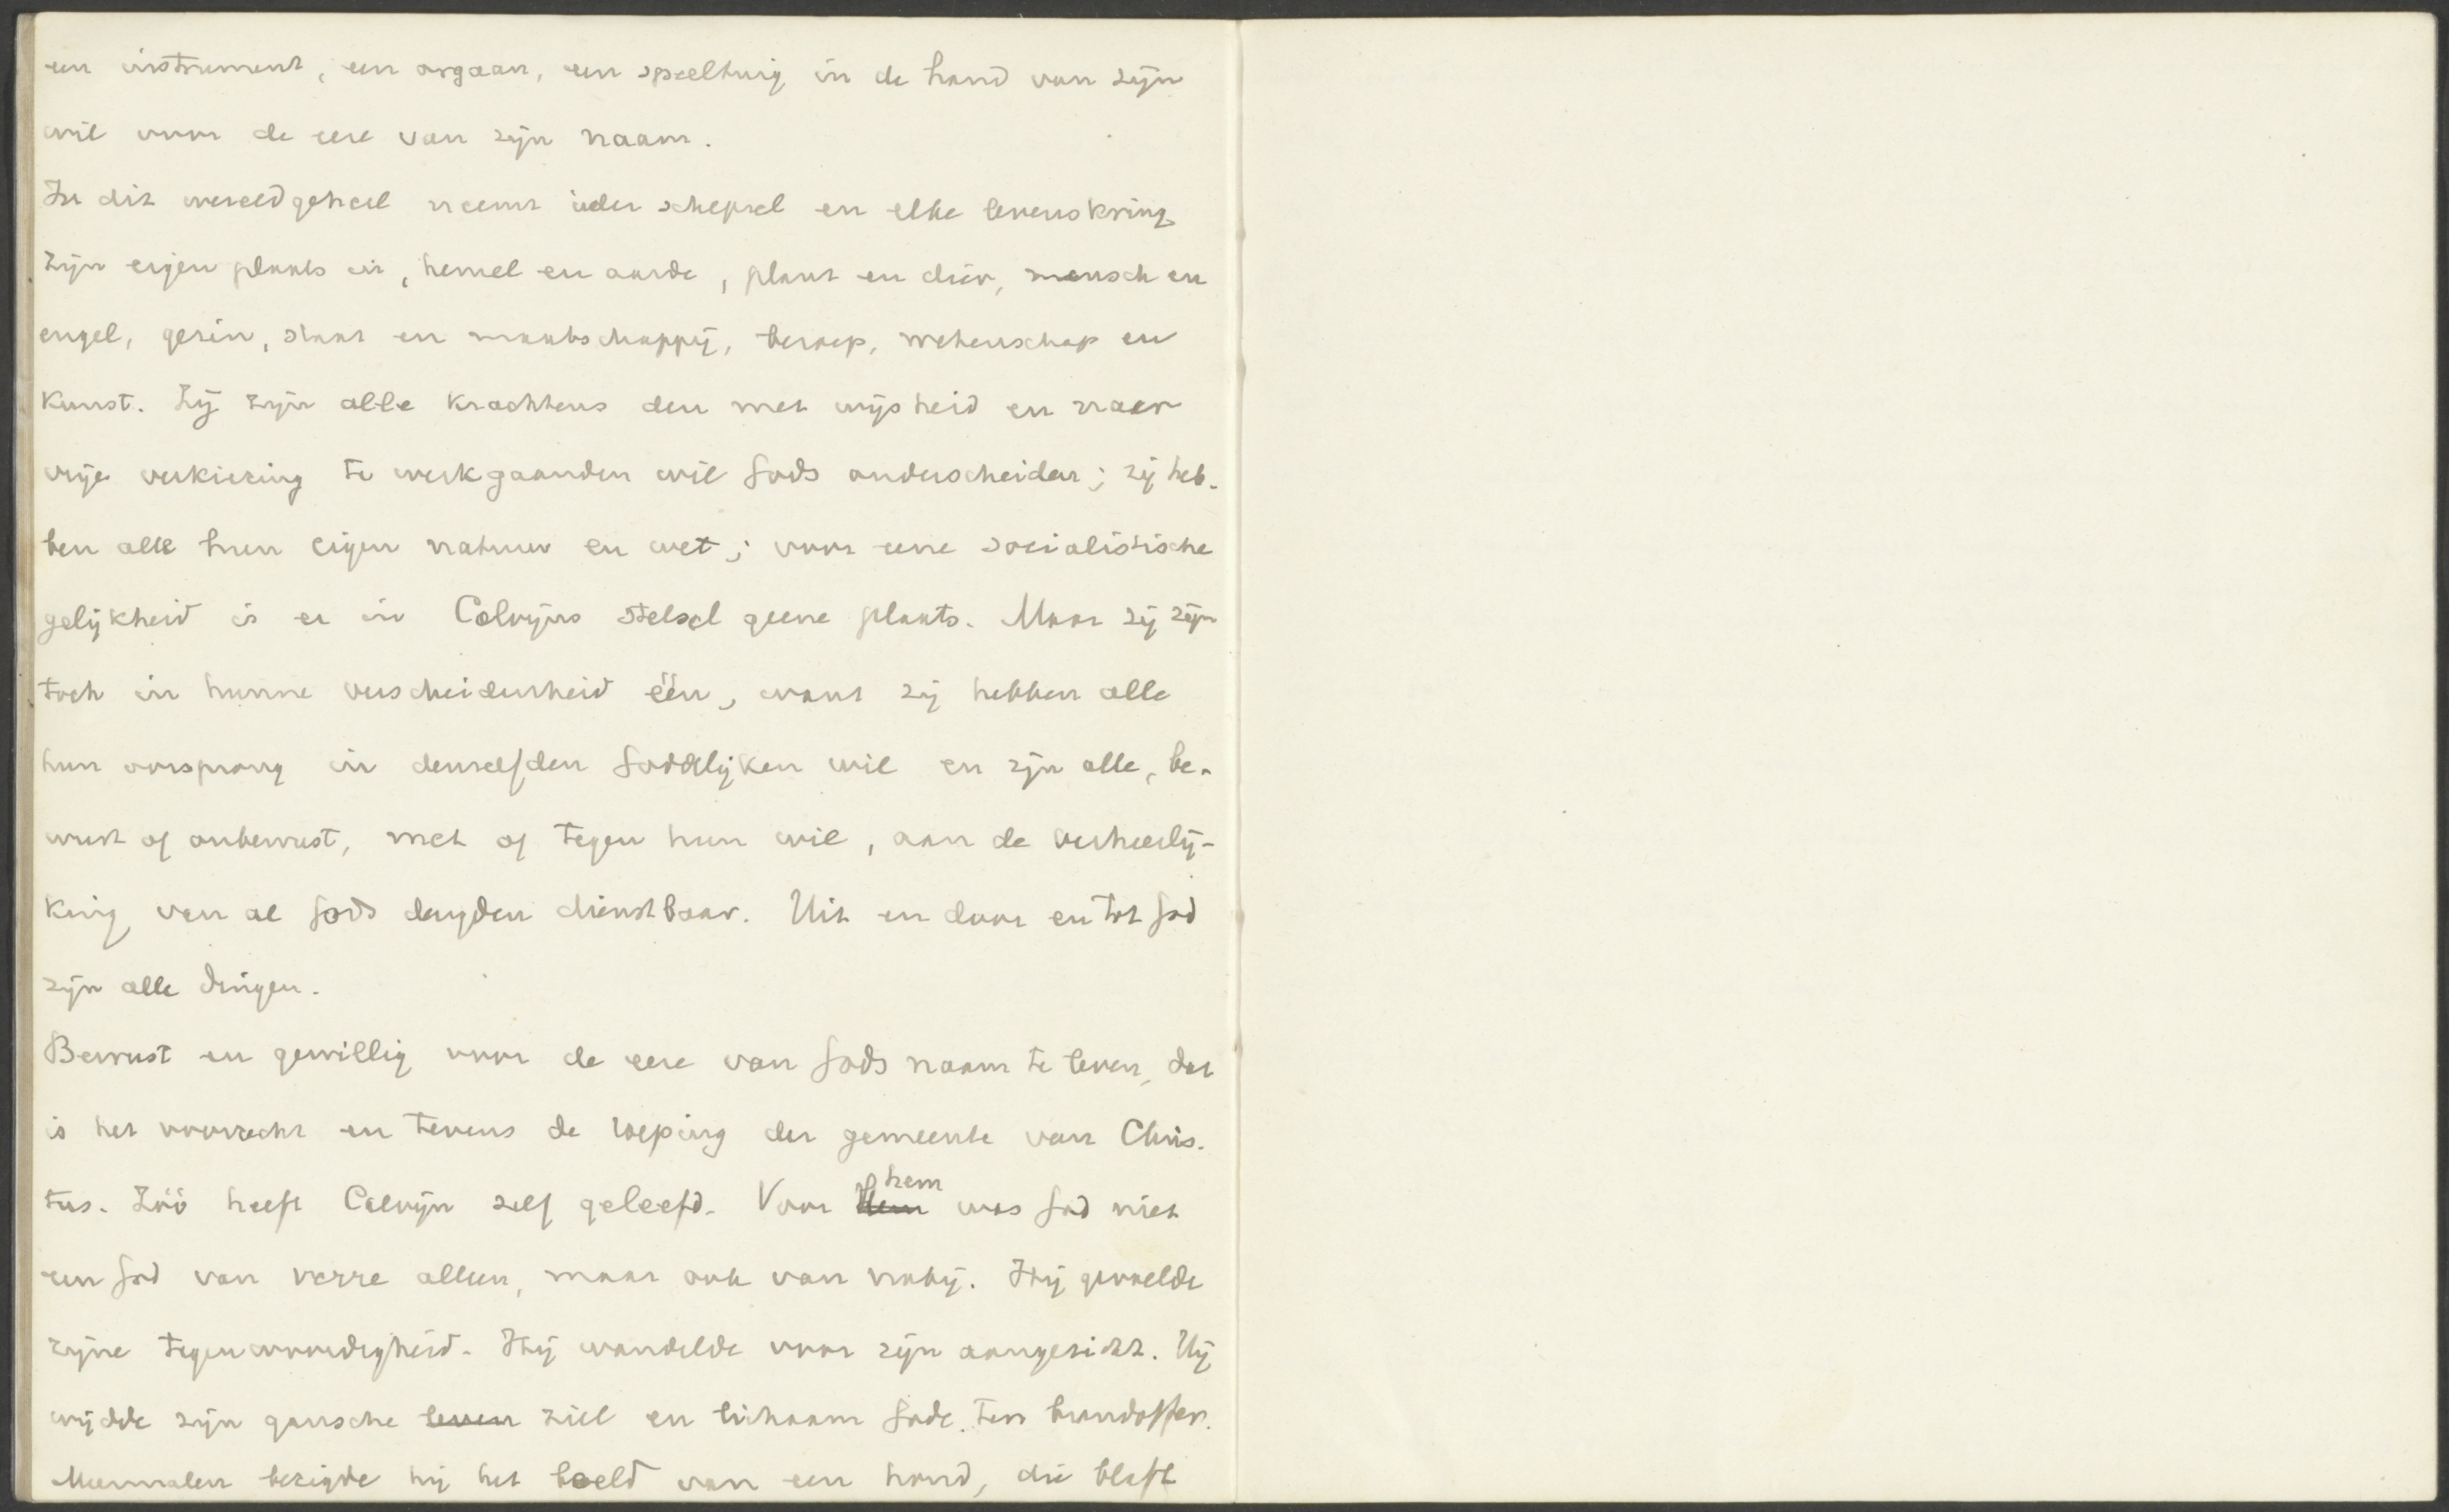 een instrument, een orgaan, een speeltuig in de hand van zijn
wil voor de eere van zijn naam.
In dit wereldgeheel neemt ieder schepsel en elke levenskring
zijn eigen plaats in, hemel en aarde, plant en dier, mensch en
engel, gezin, staat en maatschappij, beroep, wetenschap en
kunst. Zij zijn alle krachtens den met wijsheid en naar
vrije verkiezing te werk gaanden wil Gods onderscheiden; zij heb-
ben alle hun eigen natuur en wet; voor eene socialistische
gelijkheid is er in Calvijns stelsel geene plaats. Maar zij zijn
toch in hunne verscheidenheid één, want zij hebben alle
hun oorsprong in denzelfden Goddelijken wil en zijn alle, be-
wust of onbewust, met of tegen hun wil, aan de verheerlij-
king van al Gods deugden dienstbaar. Uit en door en tot God
zijn alle dingen.
Bewust en gewillig voor de eere van Gods naam te leven, dat
is het voorrecht en tevens de roeping der gemeente van Chris-
tus. Zóó heeft Calvijn zelf geleefd. Voor Hem hem was God niet
een God van verre alleen, maar ook van nabij. Hij gevoelde
zijne tegenwoordigheid. Hij wandelde voor zijn aangezicht. Hij
wijdde zijn gansche leven ziel en lichaam Gode ten brandoffer.
Meermalen bezigde hij het beeld van een hond, die blaft